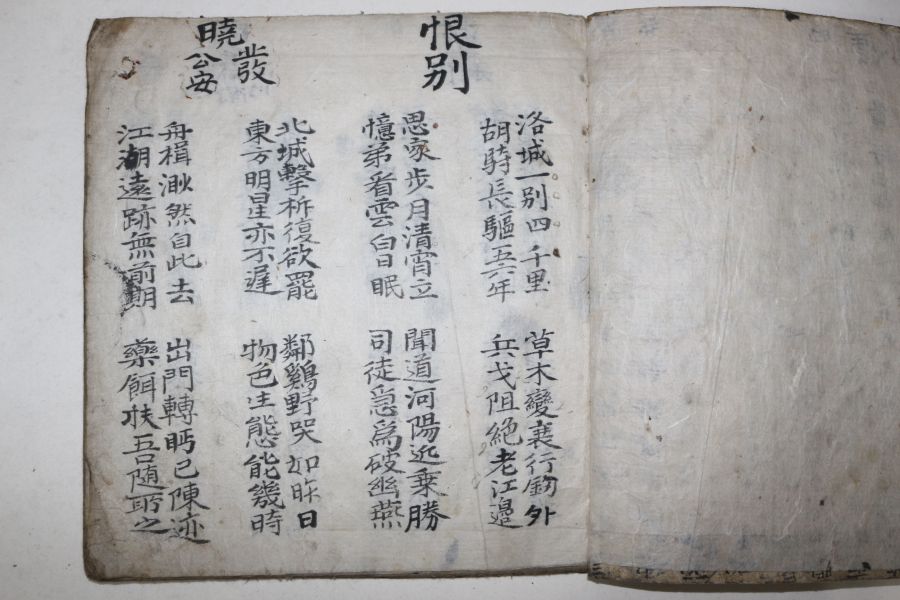 恨別
洛城一別四千里
胡騎長驅五六年
草木變衰行釰外
兵戈阻絶老江邊
思家步月清宵立
憶弟看雲白日眠
聞道河陽近乘勝
司徒急爲破幽燕
曉發
公安
北城擊柝復欲罷
東方明星亦不遲
鄰鷄野哭如昨日
物色生態能幾時
舟楫渺然自此去
江湖遠跡無前期
出門轉眄已陳迹
藥餌扶吾随所之